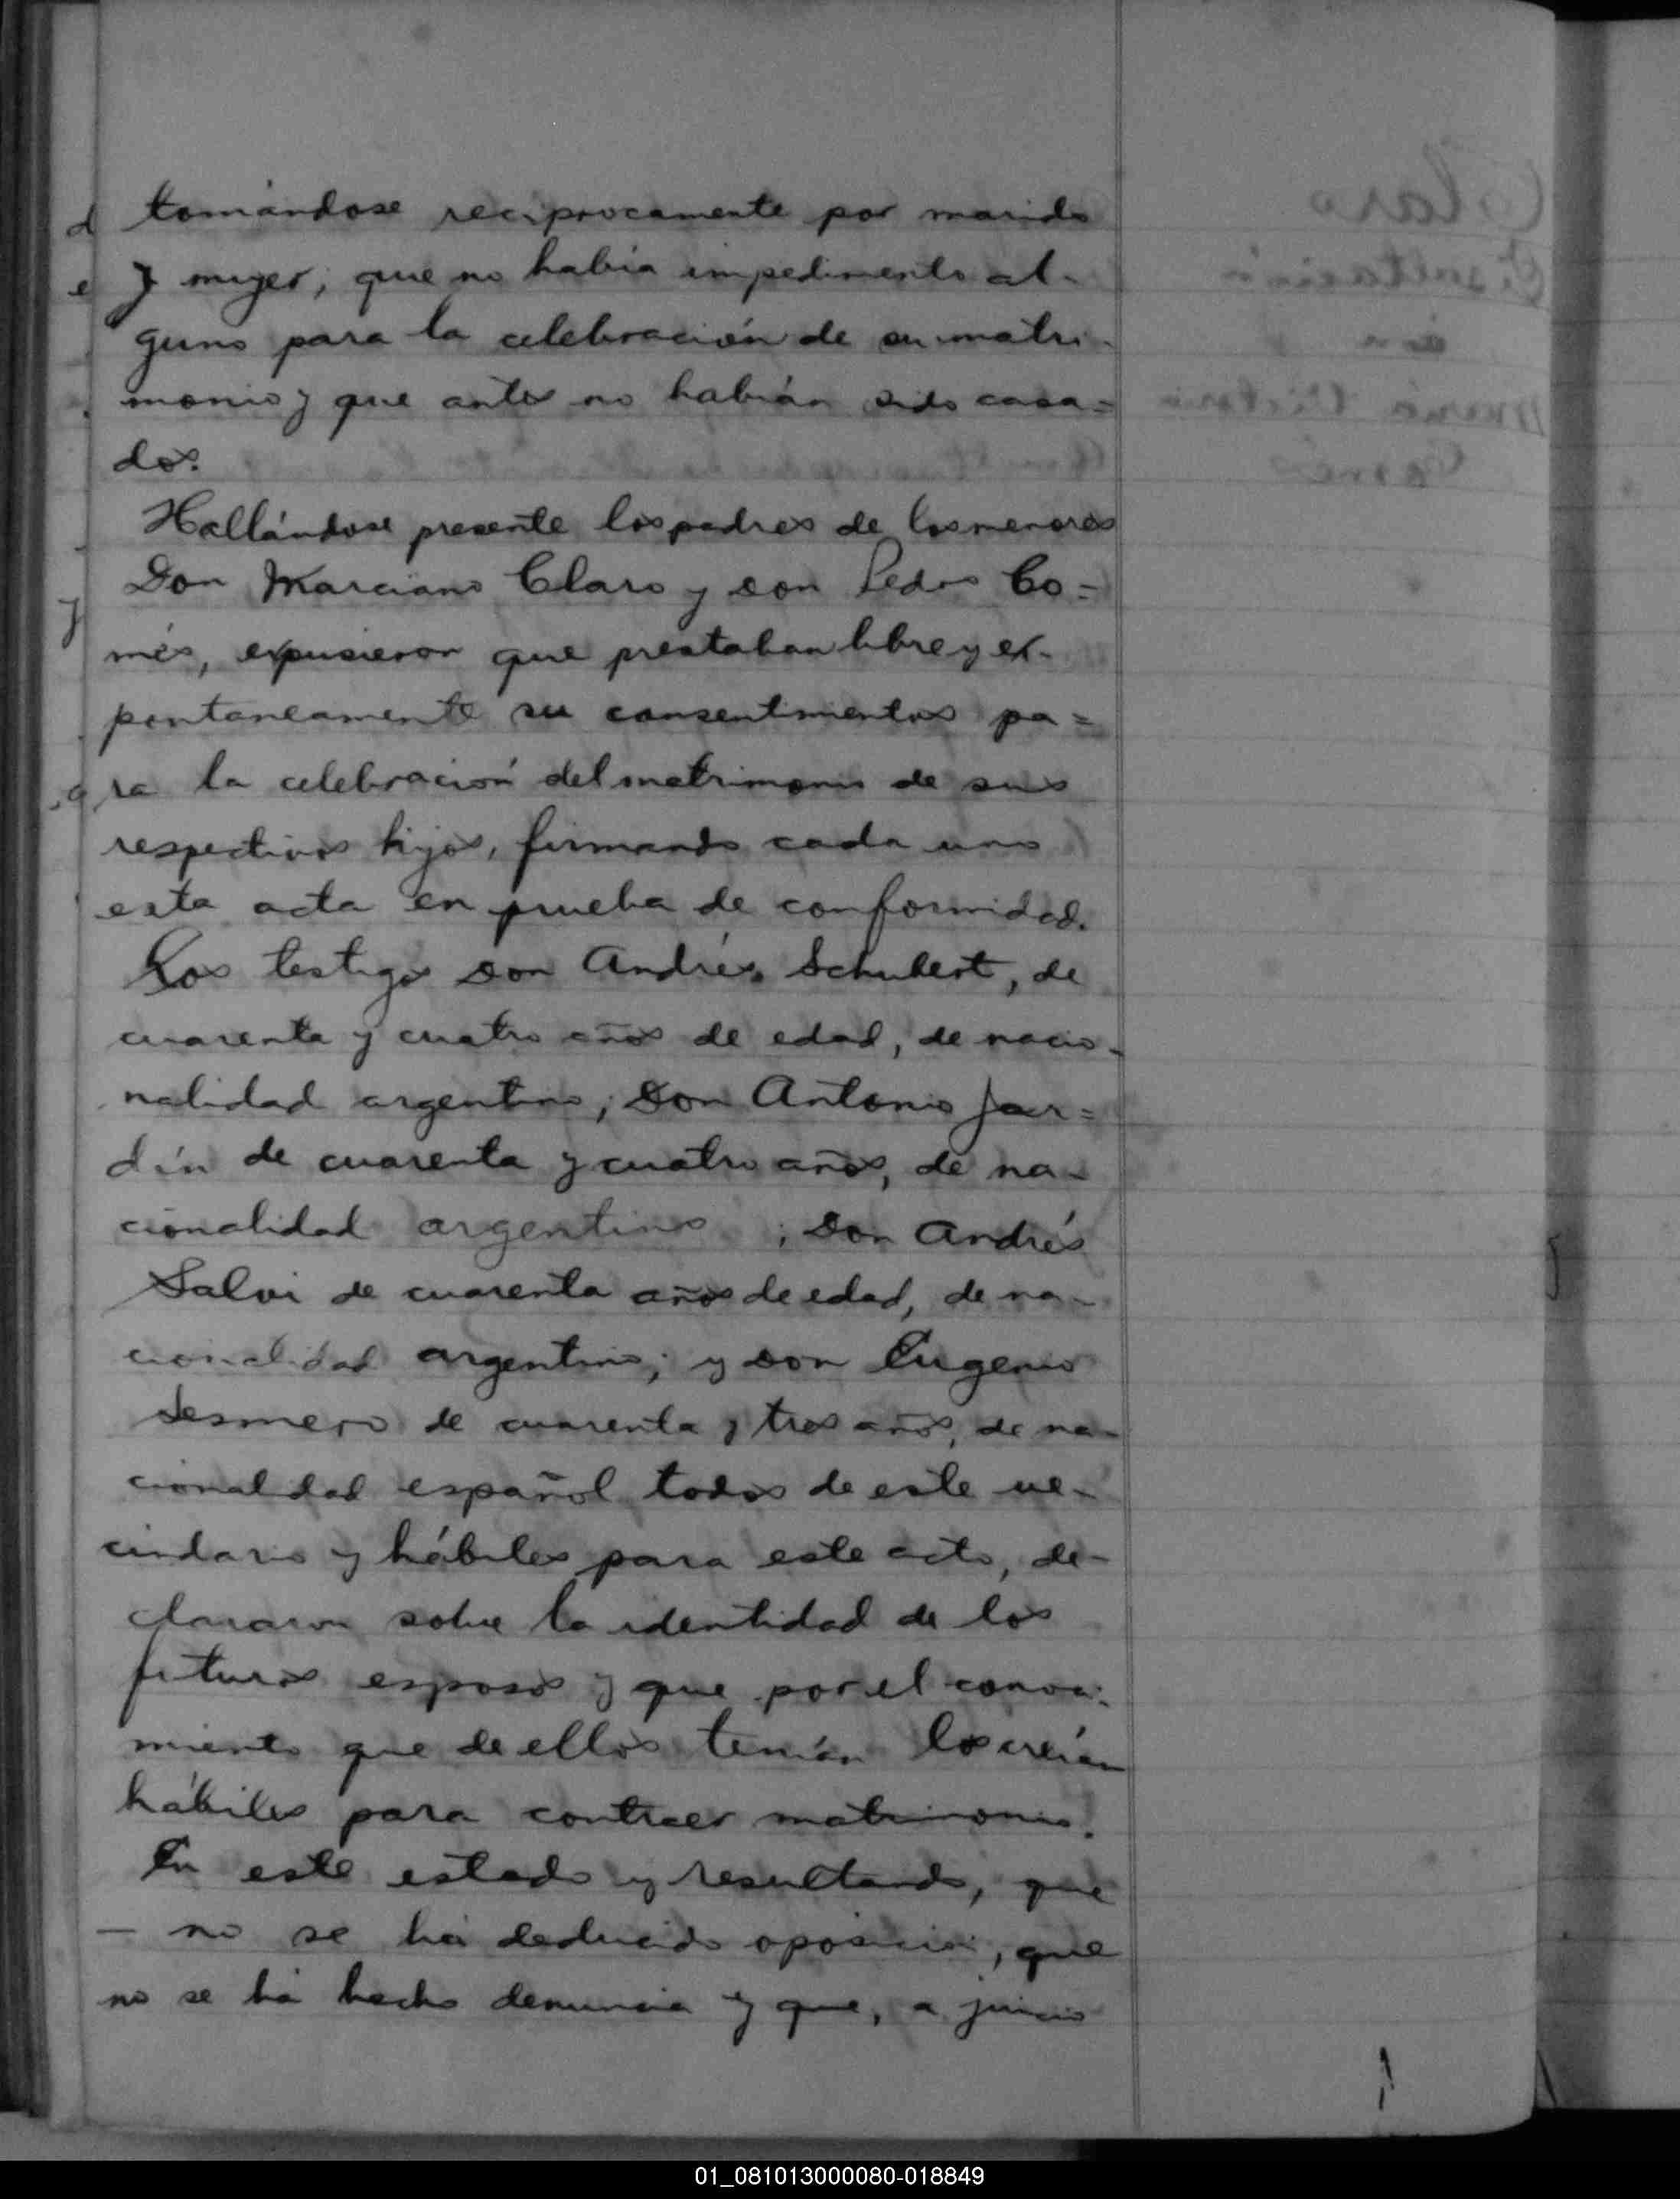 tomándose reciprocamente por marido
y mujer; que no había impedimento al-
guno para la celebración de su matri-
monio y que antes no habían sido casa=
dos.
Hallándose presente los padres de los menores
Don Marciano Claro y don Pedro Co=
més, expusieron que prestaban libre y es-
pontaneamente su consentimientos pa=
ra la celebración del matrimonio de sus
respectivos hijos, firmando cada uno
esta acta en prueba de conformidad.
Los testigos don Andrés Schubert, de
cuarenta y cuatro años de edad, de nacio-
nalidad argentino; don Antonio Jar=
dín de cuarenta y cuatro años, de na-
cionalidad argentino; don Andrés
Salvi de cuarenta años de edad, de na-
cionalidad argentino; y don Eugenio
de cuarenta y tres años, de na-
cionalidad español todos de este ve-
cindario y hábiles para este acto, de-
clararon sobre la identidad de los
futuros esposos y que por el conoci-
miento que de ellos tenían los creían
hábiles para contraer matrimonio.
En este estado y resultando, que
- no se ha deducido oposición, que
no se ha hecho denuncia y que, a juicio
01_081013000080-018849